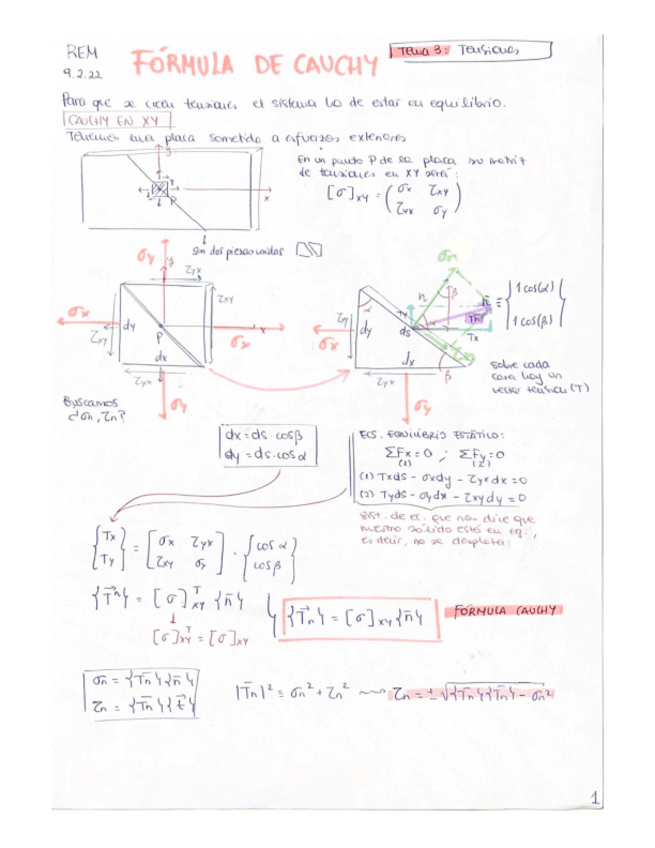 REM
9.2.22
FÓRMULA DE CAUCHY
Tema 3: Tensiones
Para que se creen tensiones el sistema ha de estar en equilibrio.
CAUCHY EN XY
Tenemos una placa sometida a esfuerzos exteriores
En un punto P de la placa su matriz
de tensiones en XY será:
[σ]xy = (σx τxy
τyx σy)
y
x
P
son dos piezas unidas
σy
y
τyx
τxy
σx
dy
P
x
σx
τxy
dx
τyx
σy
σn
n
β
α
dy
ds
Tx
Ty
dx
τyx
β
σx
σy
≡ {1 cos(α)
1 cos(β)}
sobre cada
cara hay un
vector tensión (T)
Buscamos
¿σn, τn?
dx = ds·cosβ
dy = ds·cosα
ECS. EQUILIBRIO ESTÁTICO:
ΣFx = 0 ; ΣFy = 0
(1) (2)
(1) Txds - σxdy - τyxdx = 0
(2) Tyds - σydx - τxydy = 0
Sist. de ec. que nos dice que
nuestro sólido está en eq.,
es decir, no se desplaza.
{Tx
Ty} = [σx τyx
τxy σy] · {cos α
cos β}
{T⃗n} = [σ]ᵀxy {n̄}
[σ]ᵀxy = [σ]xy
{T̄n} = [σ]xy {n̄}
FÓRMULA CAUCHY
σn = {T̄n}{n̄}
τn = {T̄n}{t̄}
|T̄n|² = σn² + τn² ⟿ τn = ±√{T̄n}{T̄n} - σn²
1